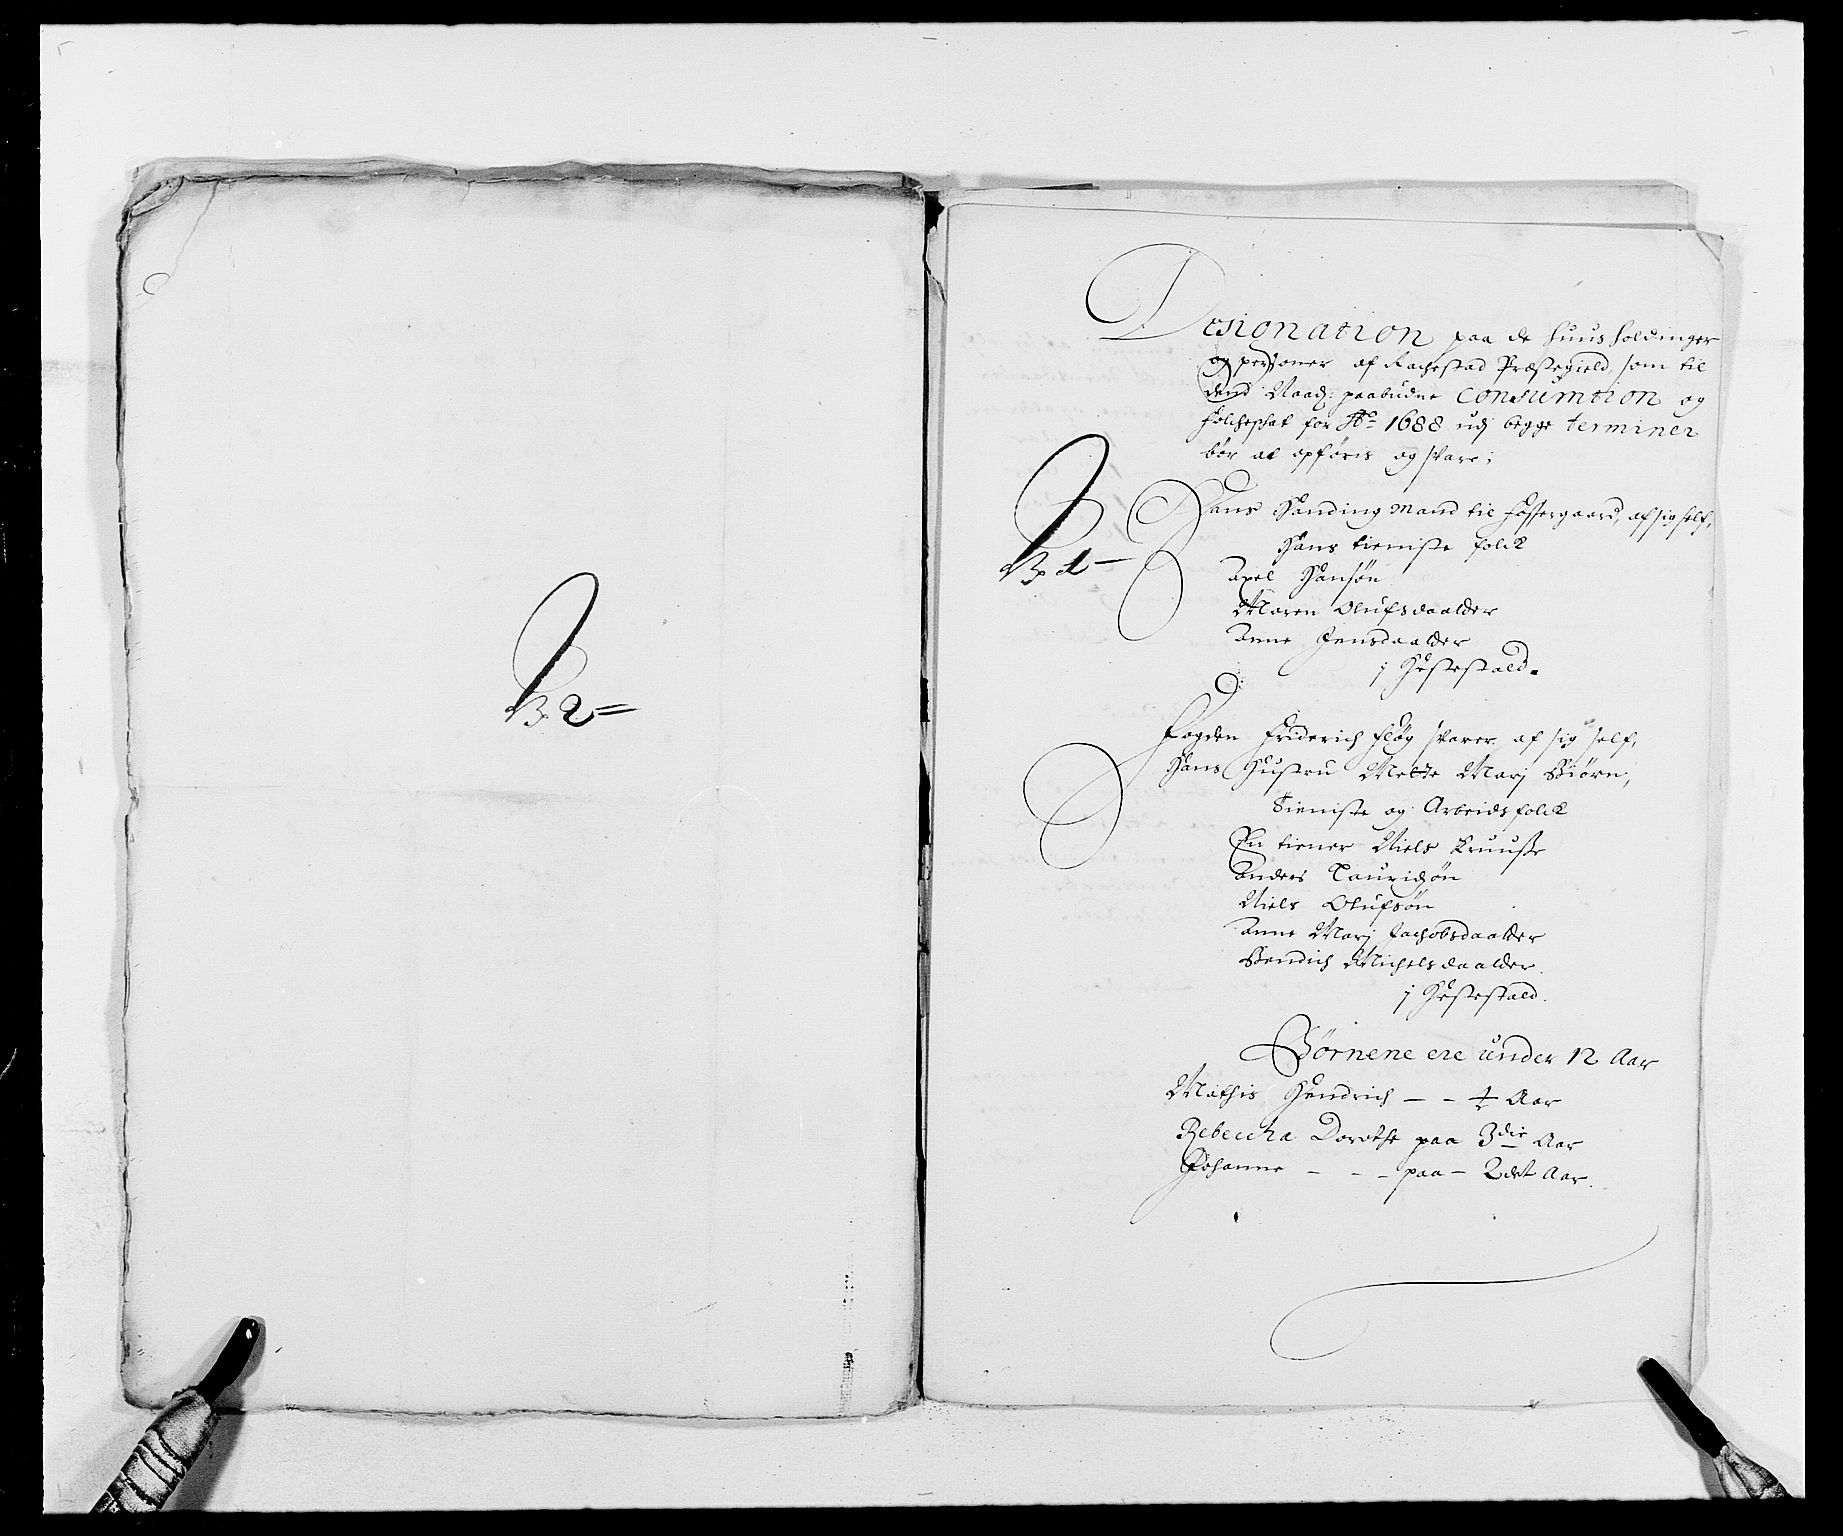 B 2 =
Designation paa de huusholdinger
og personer af Rachestad Præstegield, som til
dend Naad: paabudne Consumtion og
folcheskat for Ao 1688 udj begge terminer
bør at opføris og svare;
B 1 -
Hans Handing Mand til af sig self,
Hans tieniste folck
Axel Hansøn
Maren Olufsdaatder
Anne Jensdaatder
j Hestestald.
Fogden Friderich fløg svarer af sig self,
Hans Hustru Mette Marj Biørn,
Tieniste og Arbeidsfolck
En tiener Niels Kruuse
Anders Lauridsøn
Niels Olufsøn
Anne Marj Jachobsdaatder
Bendich Michelsdaatder
j Hestestald.
Børnene ere under 12 Aar
Mathis Hendrich - - Aar
Rebeccha Dorothe paa 3die Aar
Johanne - - - paa - 2det Aar.